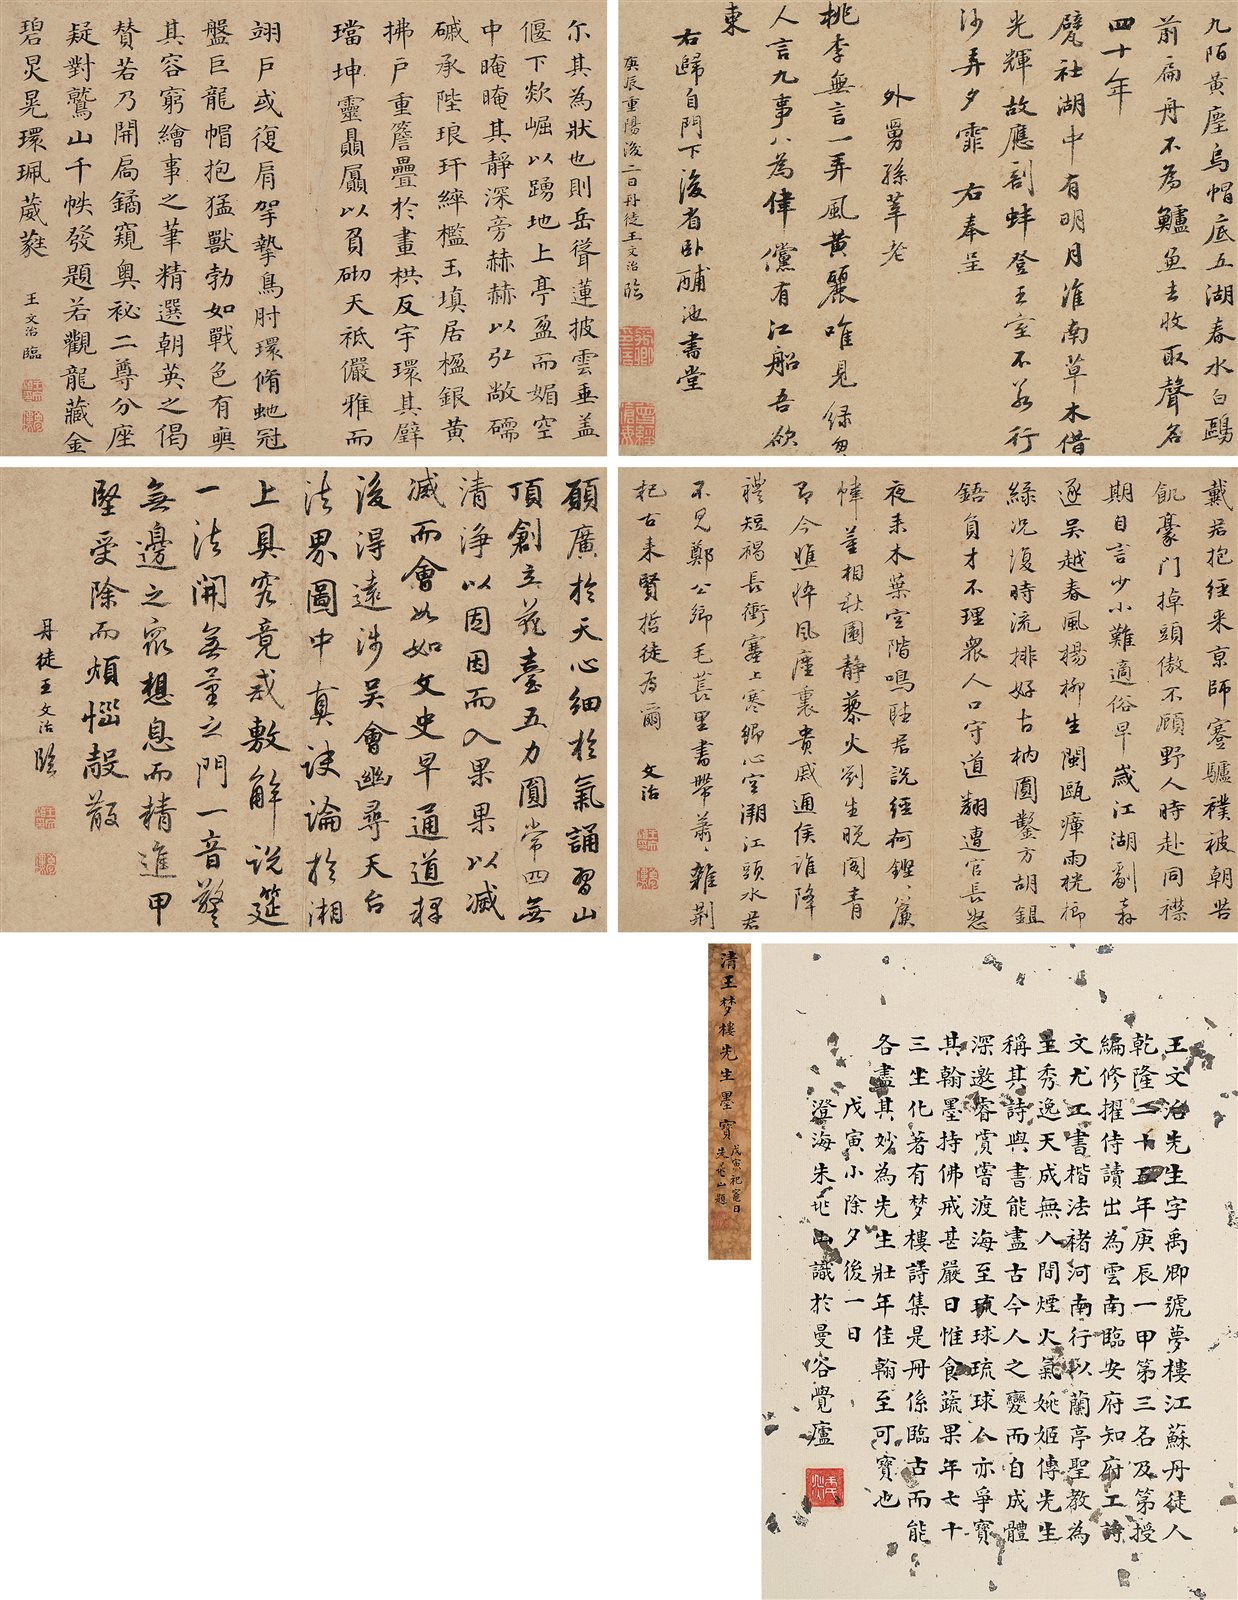 九陌黃塵烏帽底五湖春水白鷗
前扁舟不為鱸魚去收取聲名
四十年
甓社湖中有明月淮南草木借
光輝故應剖蚌登王室不若行
沙弄夕霏 右奉呈
外舅孫莘老
桃李無言一弄風黃麗唯見綠匆
人言九事八為律儻有江船吾欲
東
右歸自門下後省臥酺池書堂
庚辰重陽後二日丹徒王文治臨
尔其為狀也則岳聳蓮披雲垂盖
偃下欻崛以踴地上亭盈而媚空
中晻晻其靜深旁赫赫以弘敞礝
磩承陛琅玕綷檻玉填居楹銀黃
拂戶重簷疊於畫栱反宇環其璧
璫坤靈贔屭以負砌天祗儼雅而
翊戶或復肩拏摯鳥肘環脩虵冠
盤巨龍帽抱猛獸勃如戰色有奭
其容窮繪事之筆精選朝英之偈
賛若乃開扃鐍窺奧祕二尊分座
疑對鷲山千帙發題若觀龍藏金
碧炅晃環珮葳蕤
王文治臨
戴君抱經來京師蹇驢襆被朝苦
飢豪門掉頭傲不顧野人時赴同襟
期自言少小難適俗早歲江湖
逐吳越春風楊柳生閩甌瘴雨桄榔
綠況復時流排好古枘圓鑿方胡鉏
鋙負才不理眾人口守道翻遭官長怒
夜來木葉空階鳴聽君說經何鏗、廉
幃董相秋園靜藜火劉生晚閣青
即今憔悴風塵裏貴戚通侯誰降
禮短褐長衝塞上寒鄉心空溯江頭水君
不見鄭公鄉毛萇里書帶蕭、雜荊
杞古來賢哲徒為爾
文治
願廣於天心細於氣誦習山
頂創立花臺五力圓常四無
清淨以因因而入果果以滅
滅而會如如文史早通道釋
後得遠涉吳會幽尋天台
法界圖中真訣論於湘
上具究竟戒敷解說筵
一法開無量之門一音警
無邊之眾想息而精進甲
堅受除而煩惱殼散
丹徒王文治臨
清王梦樓先生墨寶
戊寅祀竈日
朱茁山題
王文治先生字禹卿號夢樓江蘇丹徒人
乾隆二十五年庚辰一甲第三名及第授
編修擢侍讀出為雲南臨安府知府工詩
文尤工書楷法褚河南行以蘭亭聖教為
主秀逸天成無人間煙火氣姚姬傳先生
稱其詩與書能盡古今人之變而自成體
深邀睿賞嘗渡海至琉球琉球人亦爭寶
其翰墨持佛戒甚嚴日惟食蔬果年七十
三坐化著有梦樓詩集是冊係臨古而能
各盡其妙為先生壯年佳翰至可寶也
戊寅小除夕後一日
澄海朱茁山識於曼谷覺廬